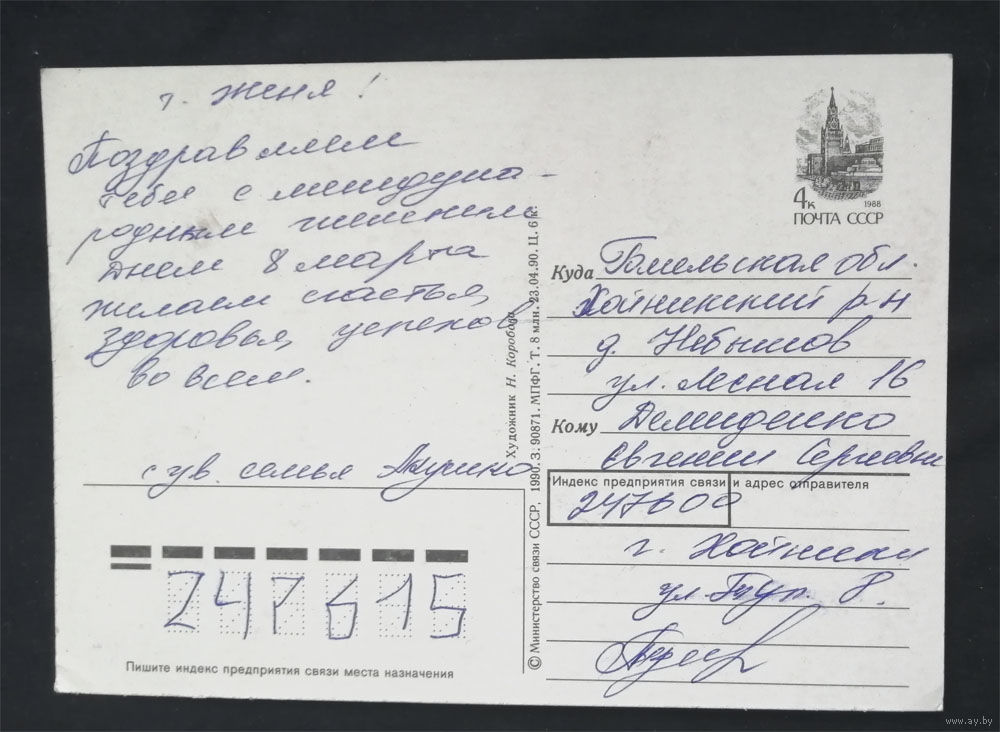 т. Женя!
Поздравляем
тебя с междуна-
родным женским
днем 8 марта
желаем счастья,
здоровья, успехов
во всем.
с ув. семья
4к 1988
ПОЧТА СССР
Куда Гомельская обл.
Хойникский р-н
д. Небытов
ул. Лесная 16
Кому Демиденко
Евгении Сергеевне
Индекс предприятия связи и адрес отправителя
247600
г. Хойники
ул. 8.
247615
Пишите индекс предприятия связи места назначения
© Министерство связи СССР, 1990. З. 90871. МПФГ. Т. 8 млн. 23.04.90. Ц. 6 к.
Художник Н. Коробова
www.ay.by